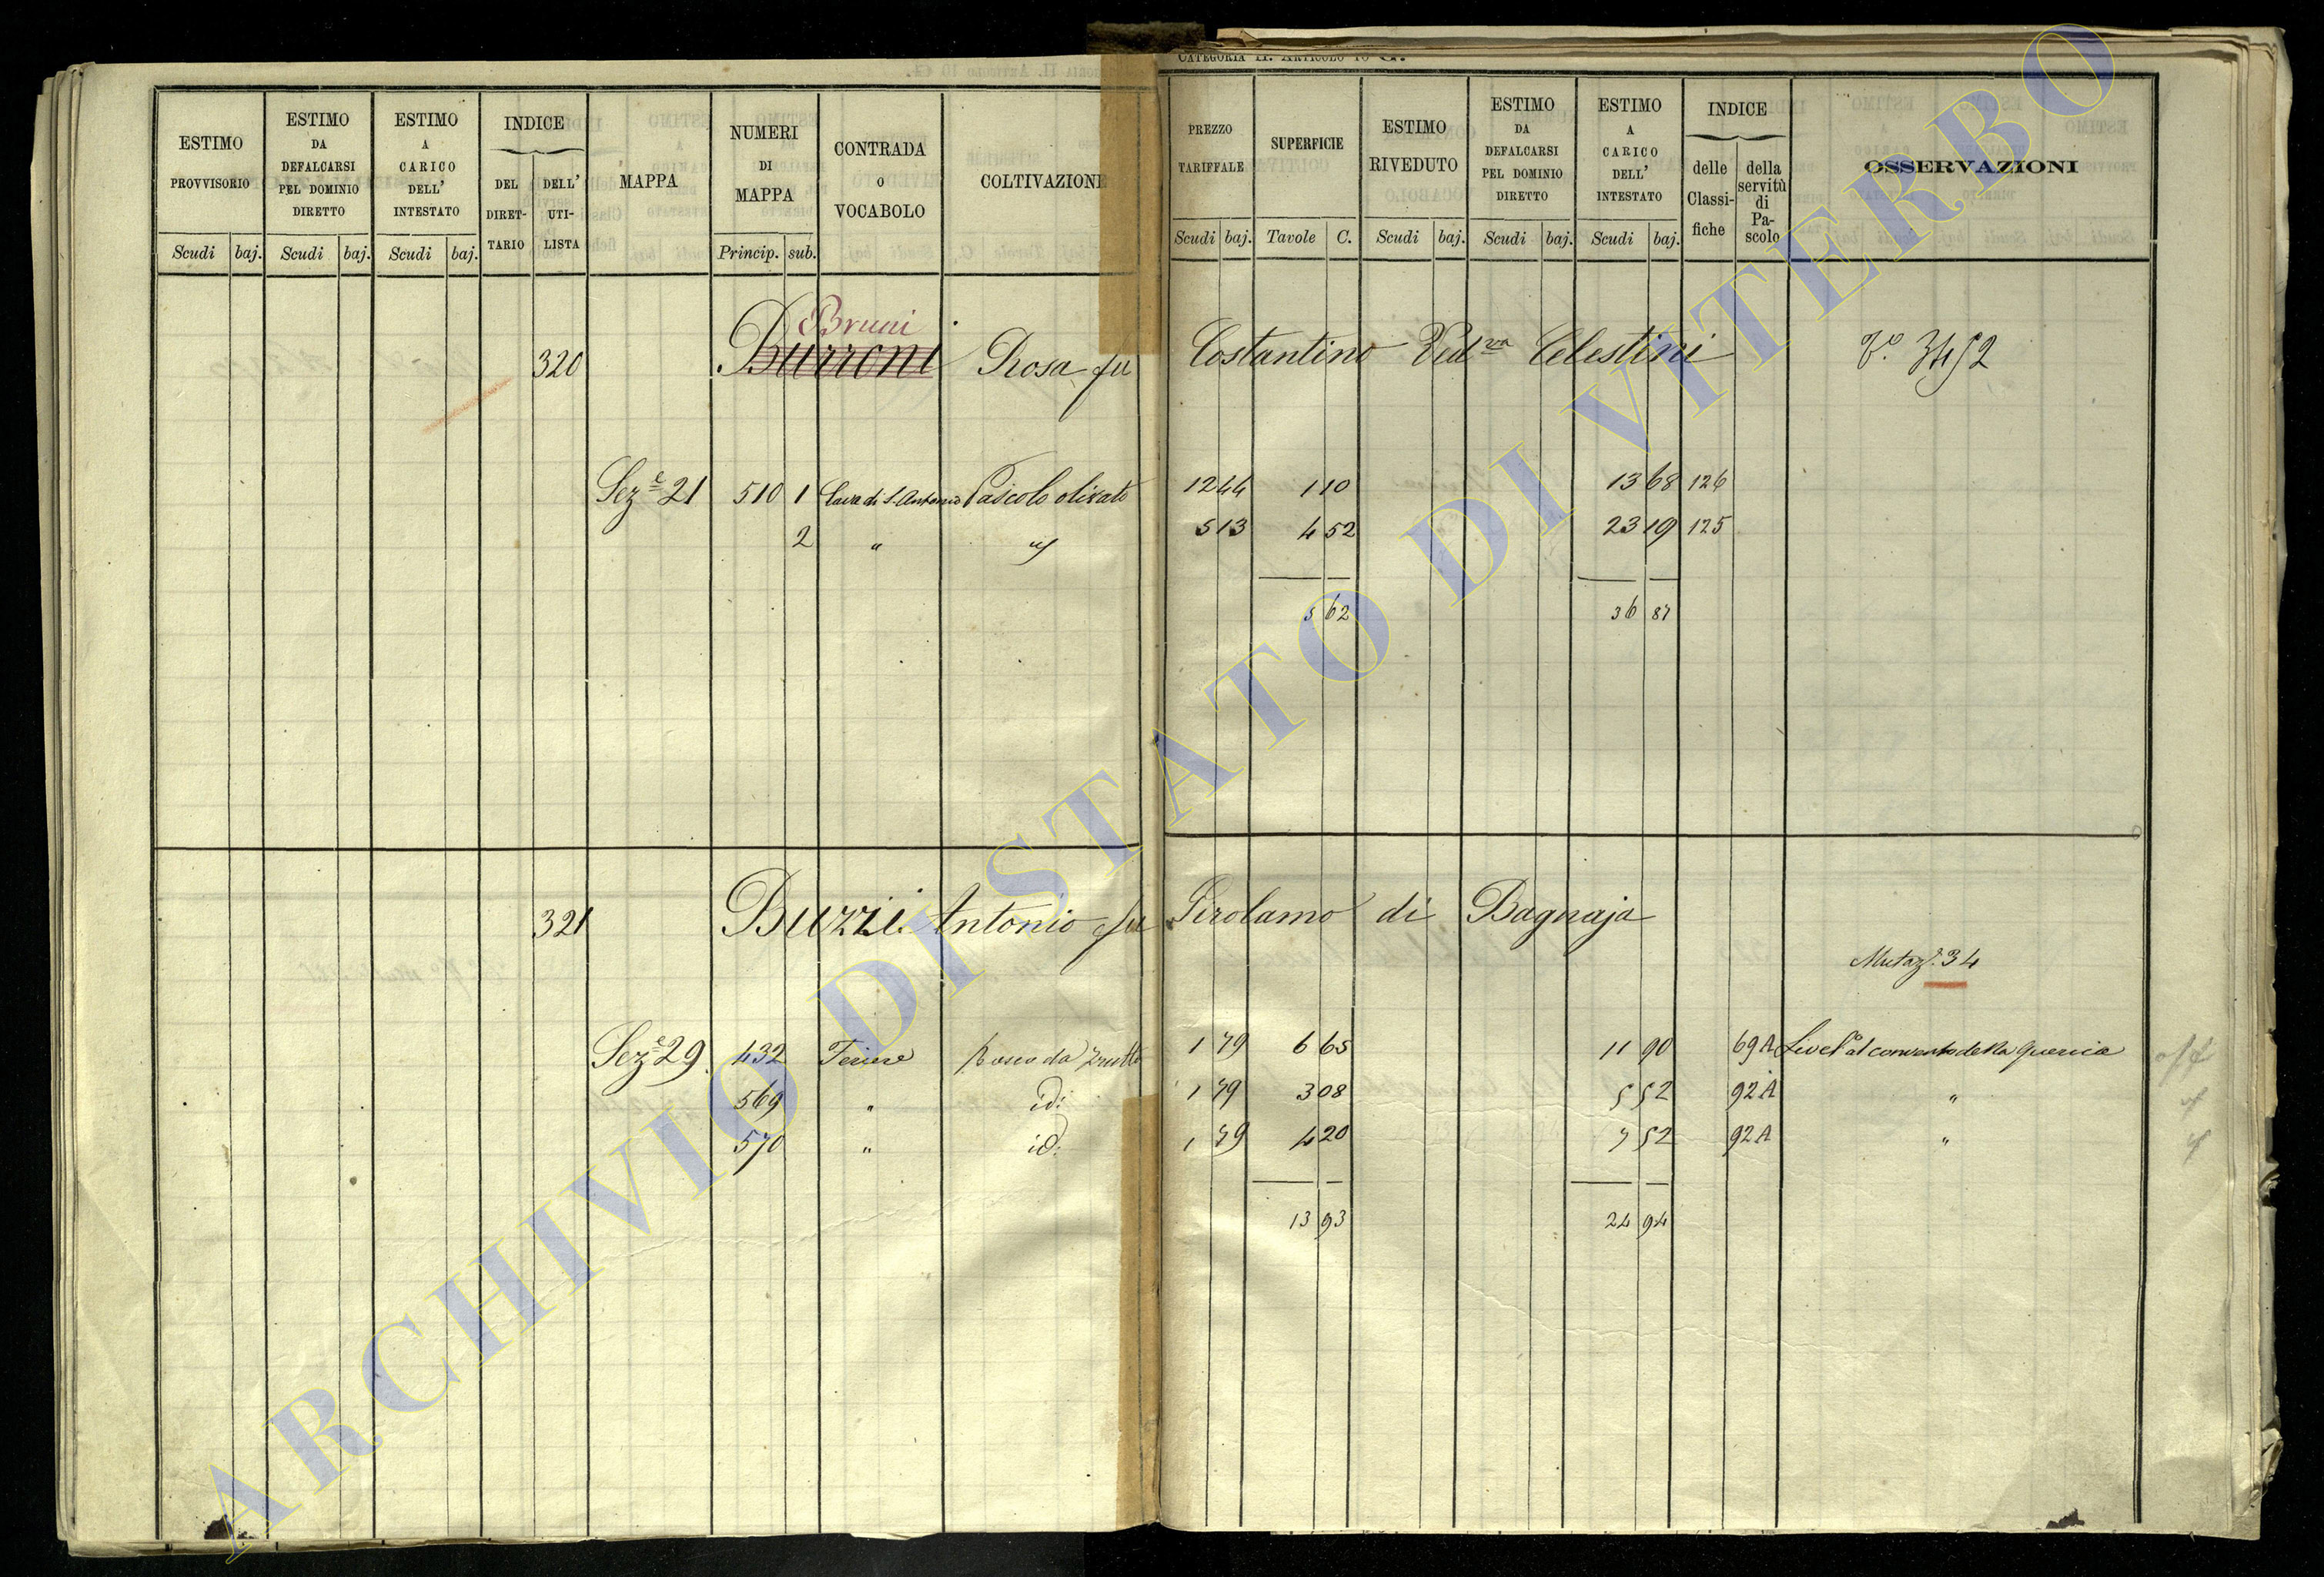 CATEGORIA II. ARTICOLO 10 G.
ESTIMO PROVVISORIO
Scudi baj.
ESTIMO DA DEFALCARSI PEL DOMINIO DIRETTO
Scudi baj.
ESTIMO A CARICO DELL' INTESTATO
Scudi baj.
INDICE
DEL DIRET-TARIO
DELL' UTI-LISTA
MAPPA
NUMERI DI MAPPA
Princip. sub.
CONTRADA O VOCABOLO
COLTIVAZIONE
PREZZO TARIFFALE
Scudi baj.
SUPERFICIE
Tavole C.
ESTIMO RIVEDUTO
Scudi baj.
ESTIMO DA DEFALCARSI PEL DOMINIO DIRETTO
Scudi baj.
ESTIMO A CARICO DELL' INTESTATO
Scudi baj.
INDICE
delle Classi-fiche
della servitù di Pa-scolo
OSSERVAZIONI
Bruni
320 Burroni Rosa fu Costantino Ved.va Celestini 3452
Sez.e 21 510 1 Cava di S. Antonio Pascolo olivato 12 44 1 10 13 68 126
2 " " 5 13 4 52 23 19 125
5 62 36 87
321 Buzzi Antonio fu Girolamo di Bagnaja
Mutaz. 34
Sez.e 29 432 Bosco da frutto 1 79 6 65 11 90 69A Livel.o al convento della Quercia
569 " id: 1 79 3 08 5 52 92A "
570 " id: 1 79 4 20 7 52 92A "
13 93 24 94
ARCHIVIO DI STATO DI VITERBO